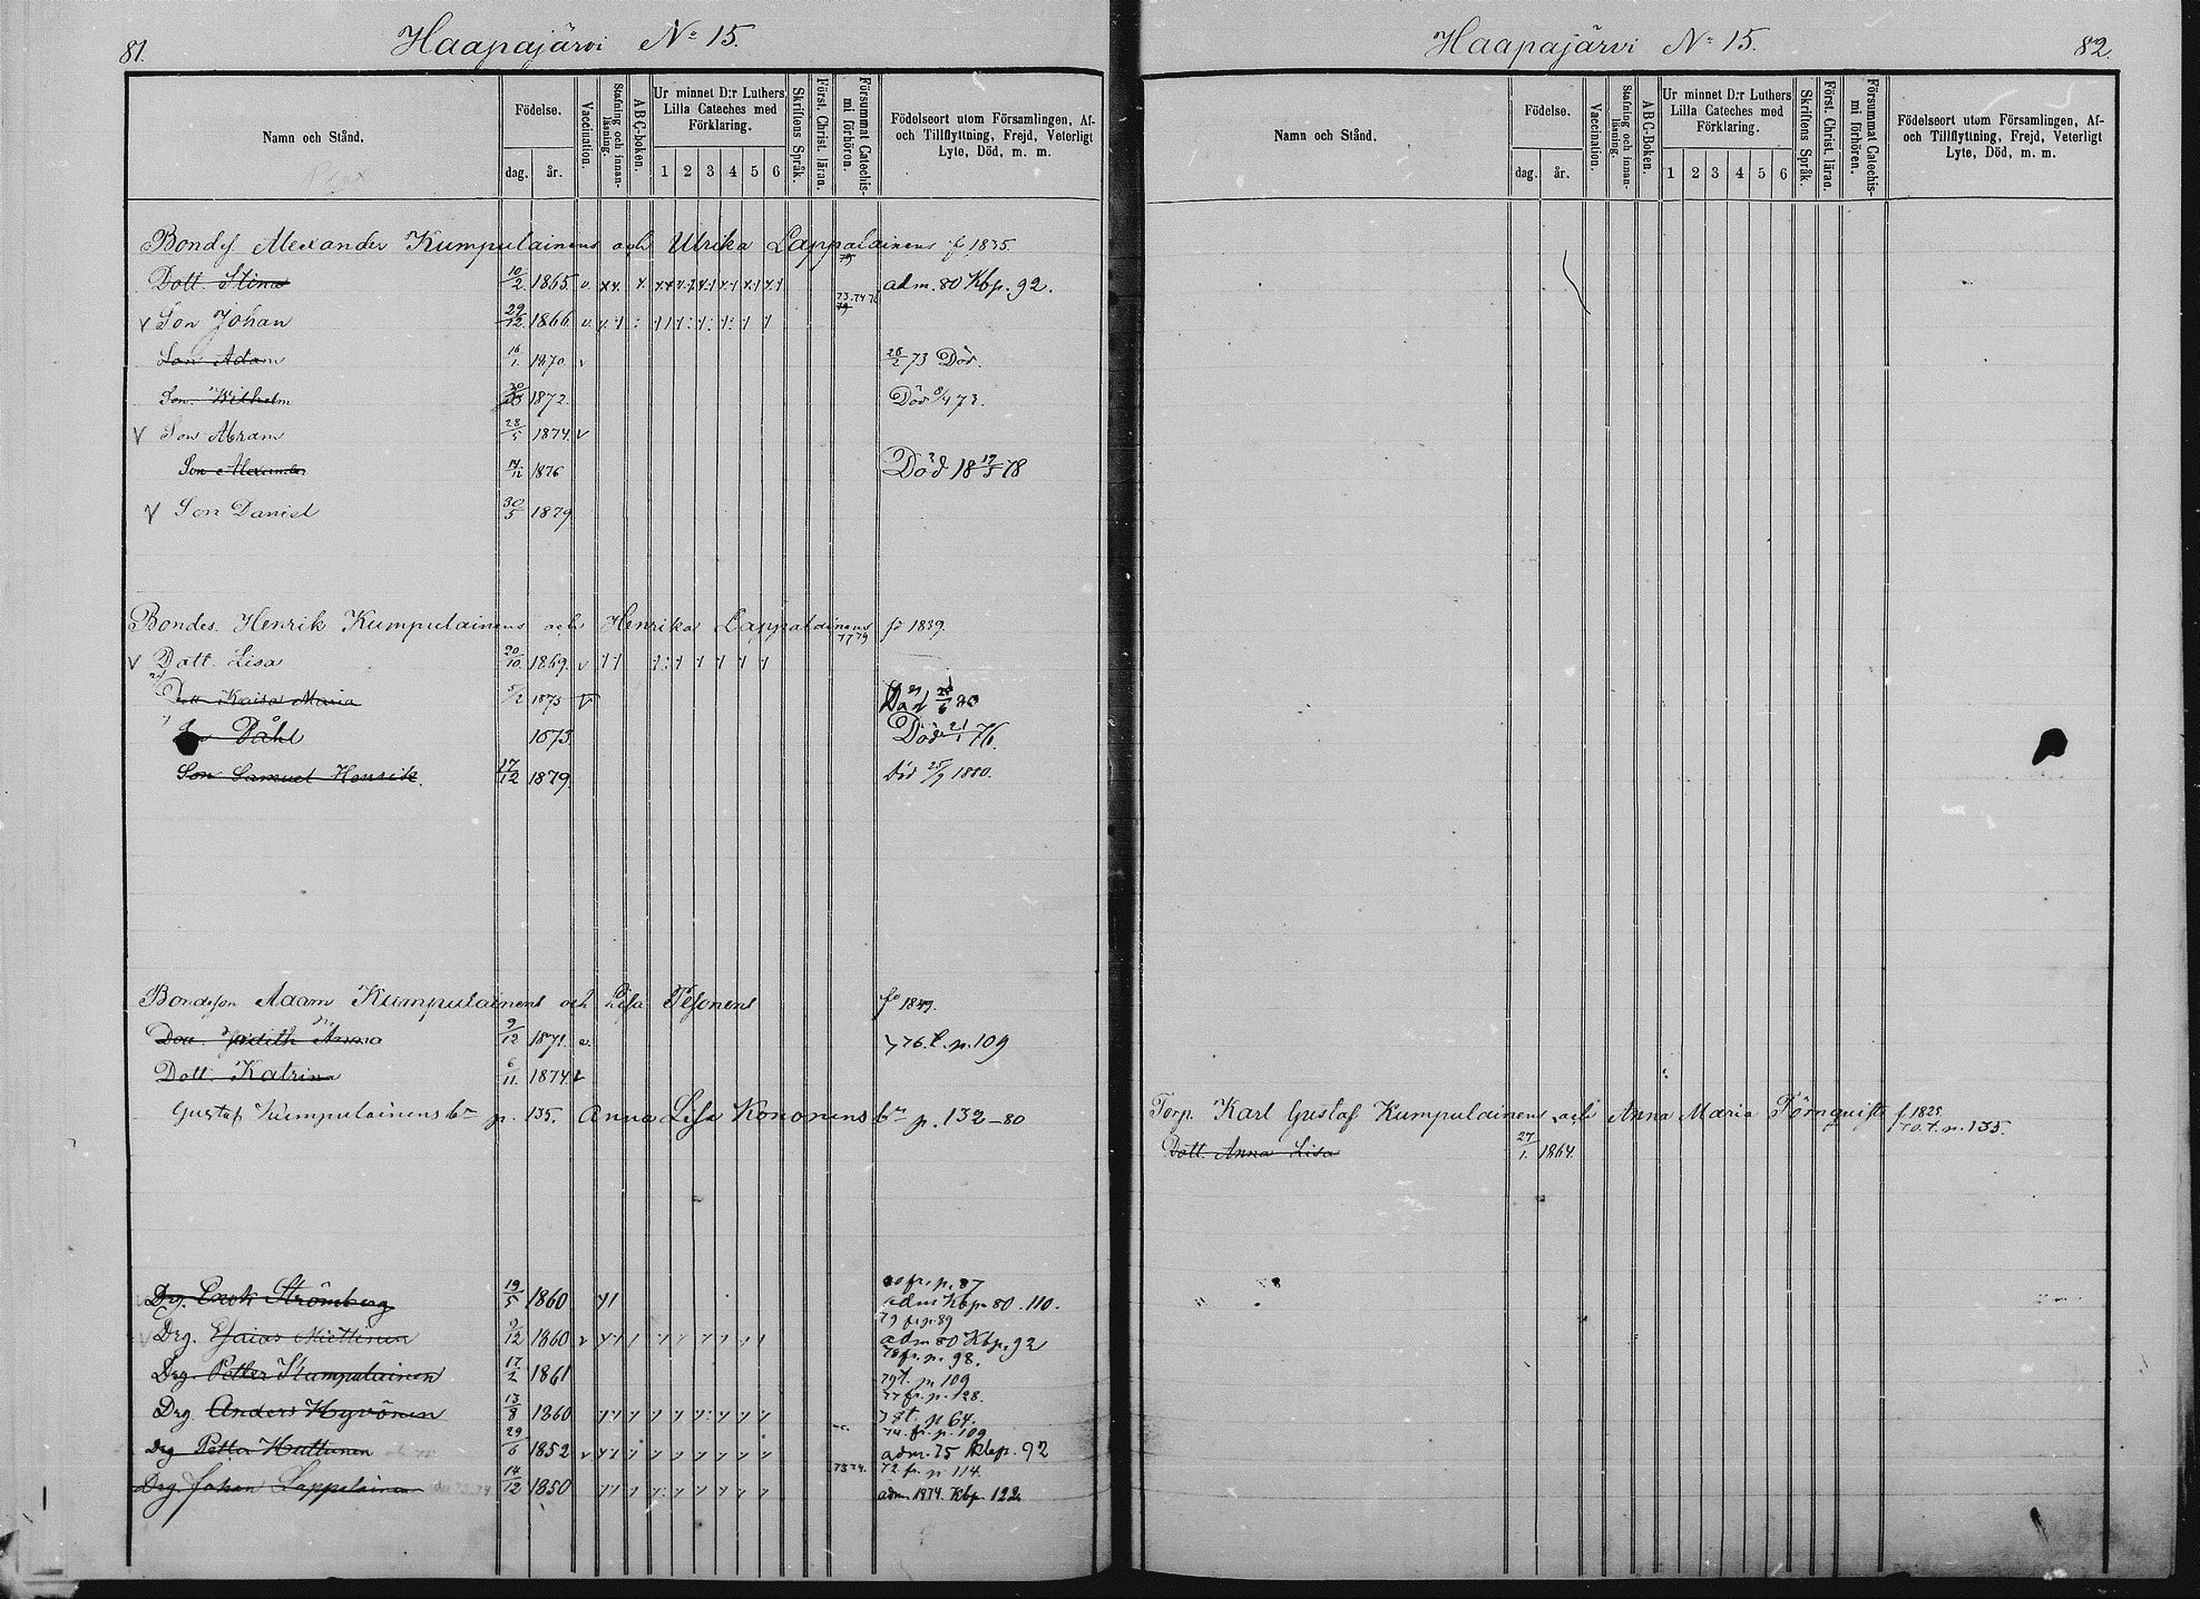 81.
Haapajärvi No 15.
Namn och Stånd.
Födelse.
dag.
år.
Vaccination.
Stafning och innanläsning.
ABC-boken.
Ur minnet D:r Luthers Lilla Cateches med Förklaring.
1 2 3 4 5 6
Skriftens Språk.
Först. Christ. läran.
Försummat Catechismi förhören.
Födelseort utom Församlingen, Af- och Tillflyttning, Frejd, Veterligt Lyte, Död, m. m.
Bondes. Alexander Kumpulainens och Ulrika Lappalainens f 1835.
Dott. Stina 10/2 1865 v. adm. 80 Kbp. 92.
v Son Johan 29/12 1866 v.
Son Adam 16/1. 1870. v 28/2 73 Död.
Son. Wilhelm 1872. Död 8/4 73.
V Son Abram 28/5 1874 v
Son Alexander 1876 Död 18 19/5 78
V Son Daniel 30/5 1879
Bondes. Henrik Kumpulainens och Henrika Lappalainens fö 1839.
77 79
v Dott. Lisa 20/10. 1869. v
Dott Kaisa Maria 5/2 1875 V Död
Påhl 1873 Död 21/1 76.
Son Samuel Henrik. 17/12 1879 Död 25/9 1880.
Bondeson Adam Kumpulainens och Lisa Pesonens fö 1849.
Dott. Judith Anna 9/12 1871. v. 76. t. p. 109
Dott. Katrina 6/11. 1874. v
Gustaf Kumpulainens bn p. 135. Anna Lisa Kononens bn p. 132-80
Drg. Erik Strömberg 19/5 1860 80 fr. p. 87
adm Kbp 80. 110.
Drg. Esaias Miettinen 9/12 1860 v 79 fr. p. 89
adm 80 Kbp. 92
Drg. Petter Kumpulainen 17/2 1861 78 fr. p. 98.
79 t. p. 109
Drg. Anders Hyvönen 13/8 1860 77 fr. p. 128.
78 t. p 64.
Drg Petter Huttunen 29/6 1852 v 74. fr. p. 109
adm. 75 Kbp. 92
Drg. Johan Lappalainen 14/12 1850 73 74. 72. fr. p 114.
adm 1874. Kbp 122
Haapajärvi No 15.
82.
Namn och Stånd.
Födelse.
dag.
år.
Vaccination.
Stafning och innanläsning.
ABC-boken.
Ur minnet D:r Luthers Lilla Cateches med Förklaring.
1 2 3 4 5 6
Skriftens Språk.
Först. Christ. läran.
Försummat Catechismi förhören.
Födelseort utom Församlingen, Af- och Tillflyttning, Frejd, Veterligt Lyte, Död, m. m.
Torp. Karl Gustaf Kumpulainens och Anna Maria Törnquists f. 1825.
70. t. p. 135.
Dott. Anna Lisa 27/1. 1864.